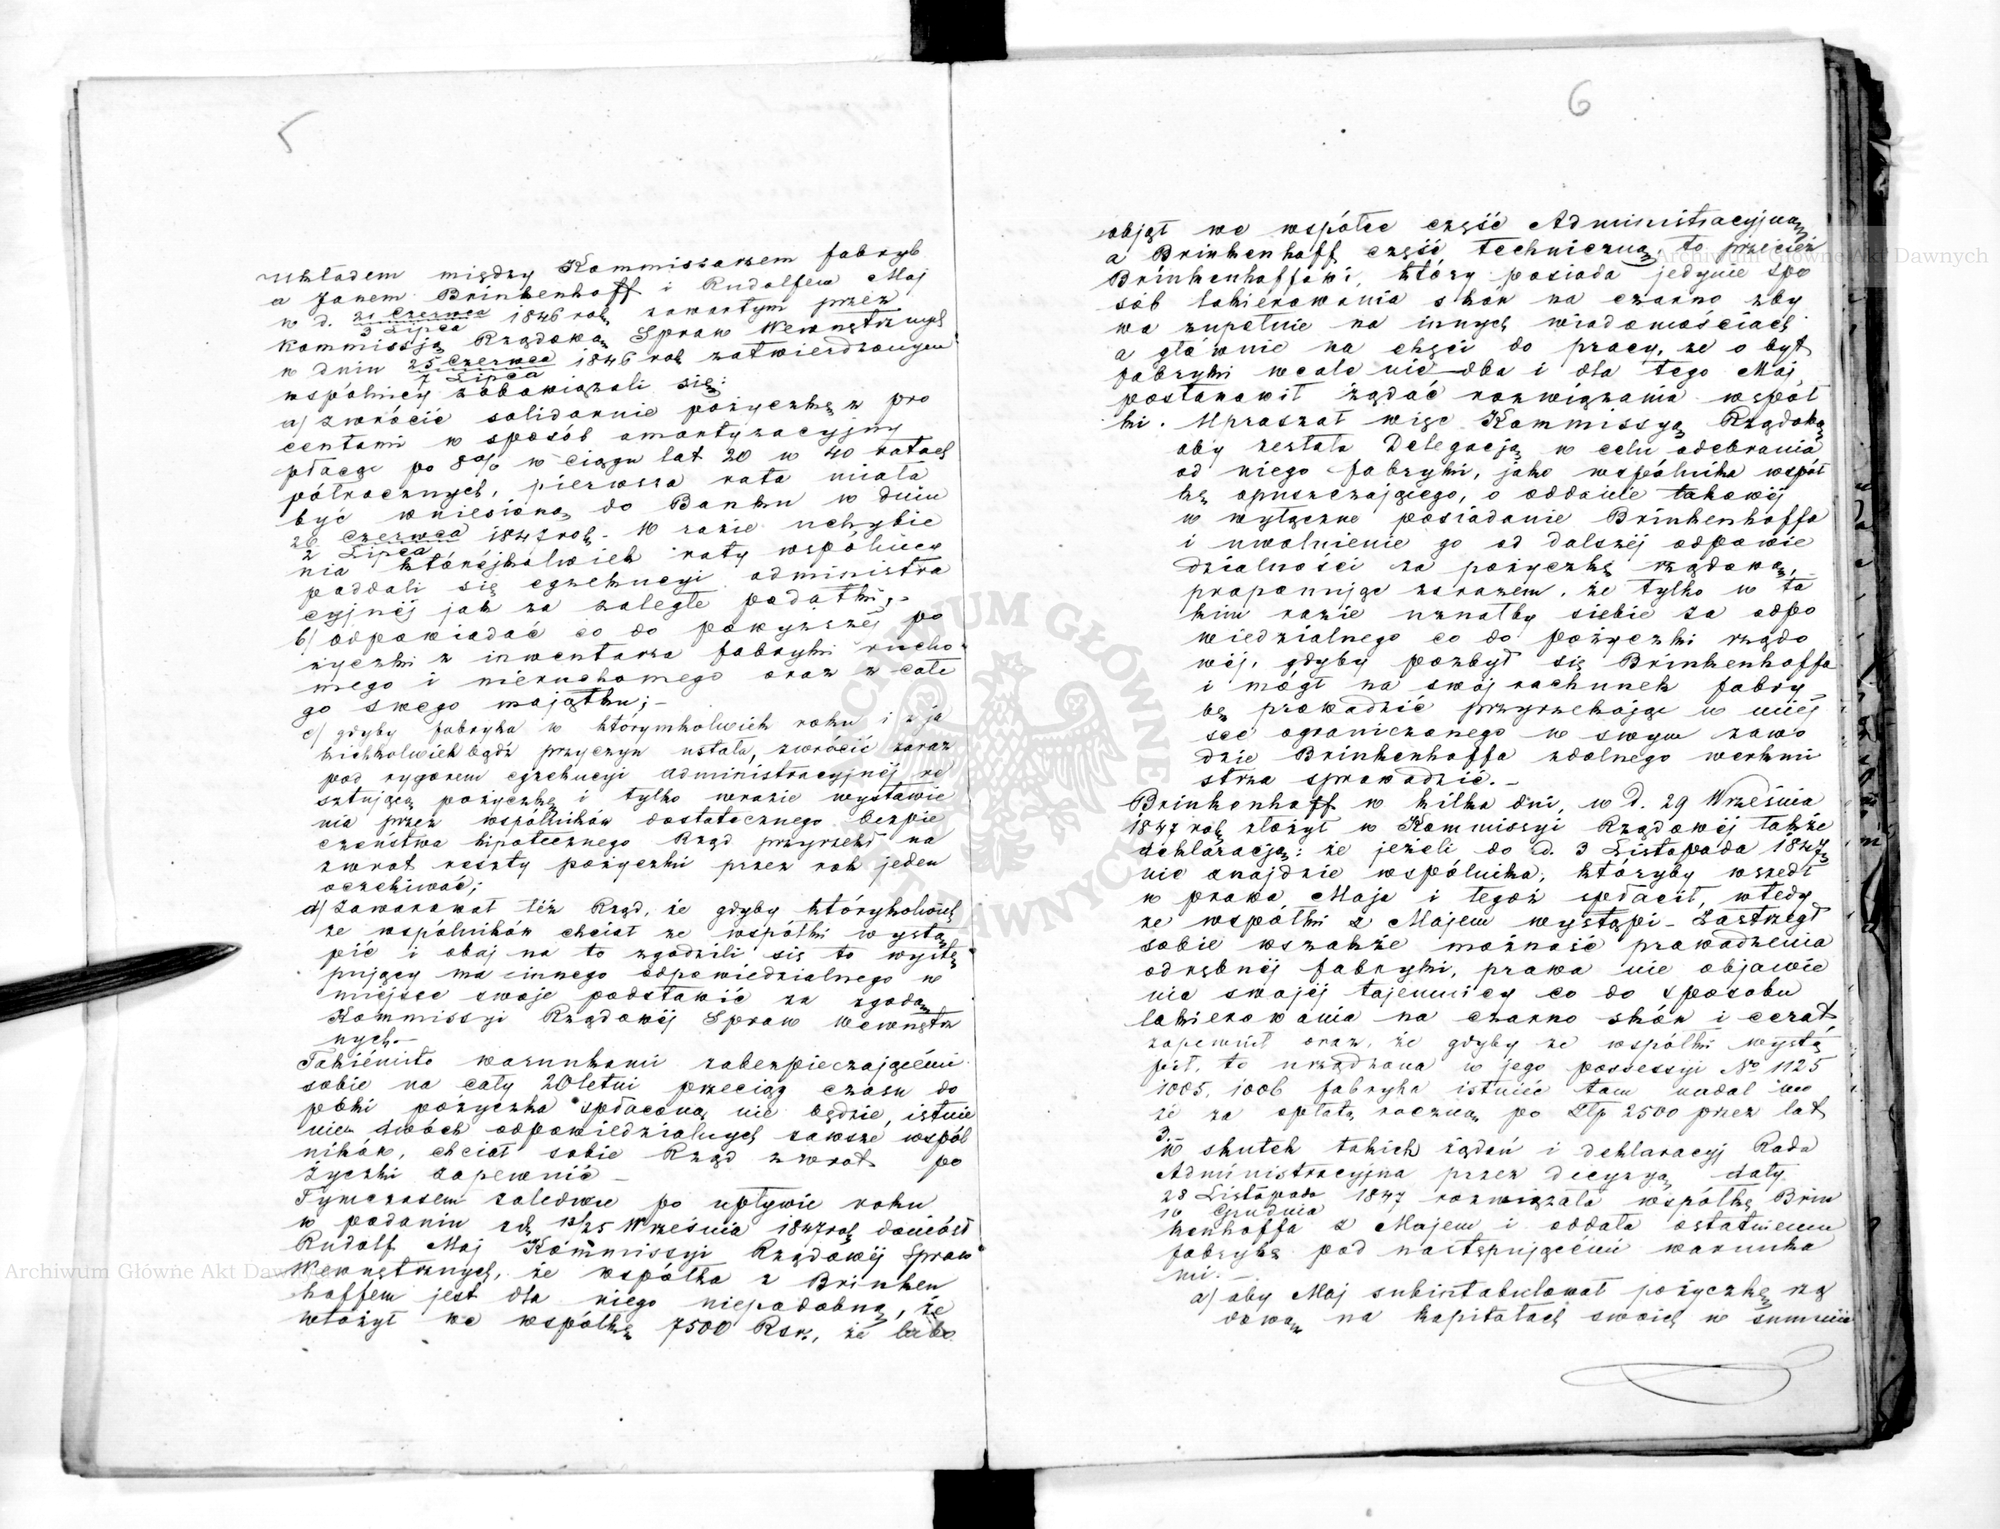 5
Układem między Kommissarzem fabryk
a Janem Brinkenhoff i Rudolfem Maj
w d. 21 Czerwca / 3 Lipca 1846 rok. zawartym przez
Kommissją Rządową Spraw Wewnętrznych
w dniu 25 Czerwca / 7 Lipca 1846 rok zatwierdzonym
wspólnicy zobowiązali się:
a) zwrócić solidarnie pożyczkę z pro
centami w sposób amortyzacyjny
płacąc po 8% w ciągu lat 20 w 40 ratach
półrocznych, pierwsza rata miała
być wniesioną do Banku w dniu
20 Czerwca / 2 Lipca 1847 rok. W razie uchybie
nia którejkolwiek raty wspólnicy
poddali się egzekucyi administra
cyjnéj jak za zaległe podatki,-
b) odpowiadać co do powyższéj po
życzki z inwentarza fabryki rucho
mego i nieruchomego oraz z całe
go swego majątku;-
c) gdyby fabryka w którymkolwiek roku i z ja
kichkolwiek bądź przyczyn ustała, zwrócić zaraz
pod rygorem egzekucyi administracyjnéj re
sztującą pożyczkę i tylko wrazie wystawie
nia przez wspólników dostatecznego bezpie
czeństwa hipotecznego Rząd przyrzekł na
zwrot reszty pożyczki przez rok jeden
oczekiwać;
d) Zawarował też Rząd, że gdyby którykolwiek
ze wspólników chciał ze wspólki wystą
pić i obaj na to zgodzili się to wystę
pujący ma innego odpowiedzialnego w
miejsce swoje podstawić za zgodą
Kommissyi Rządowéj Spraw Wewnętrz
nych.-
Takiémito warunkami zabezpieczającémi
sobie na cały 20letni przeciąg czasu do
póki pożyczka spłaconą nie będzie, istnie
nie dwóch odpowiedzialnych zawsze wspól
ników, chciał sobie Rząd zwrot po
życzki zapewnić –
Tymczasem zaledwie po upływie roku
w podaniu z d. 13/25 Września 1847 rok doniósł
Rudolf Maj Kommissyi Rządowéj Spraw
Wewnętrznych, że wspólka z Brinken
hoffem jest dla niego niepodobną, że
włożył we wspólkę 7500 Rsr, że lubo
6
objął we wspólce część Administracyjną
a Brinkenhoff część techniczną, to przecież
Brinkenhoffowi, który posiada jedynie spo
sób lakierowania skór na czarno zby
wa zupełnie na innych wiadomościach
a głównie na chęci do pracy, że o byt
fabryki wcale nie dba i dla tego Maj
postanowił żądać rozwiązania wspól
ki. Upraszał więc Kommissyą Rządową
aby zesłała Delegacją w celu odebrania
od niego fabryki, jako wspólnika wspól
kę opuszczającego, o oddanie takowéj
w wyłączne posiadanie Brinkenhoffa
i uwolnienie go od dalszéj odpowie
dzialności za pożyczkę rządową,
proponując zarazem, że tylko w ta
kim razie uznałby siebie za odpo
wiedzialnego co do pożyczki rządo
wéj, gdyby pozbył się Brinkenhoffa
i mógł na swój rachunek fabry
kę prowadzić przyrzekając w miej
sce ograniczonego w swym zawo
dzie Brinkenhoffa zdolnego werkmi
strza sprowadzić.-
Brinkenhoff w kilka dni, w d. 29 Września
1847 rok złożył w Kommissyi Rządowéj także
deklaracją: że jeżeli do d. 3 Listopada 1847
nie znajdzie wspólnika, któryby wszedł
w prawa Maja i tegoż spłacił, wtedy
ze wspólki z Majem wystąpi – Zastrzegł
sobie wszakże możność prowadzenia
odrębnéj fabryki, prawa nie objawie
nia swojéj tajemnicy co do sposobu
lakierowania na czarno skór i cerat,
zapewnił oraz, że gdyby ze wspólki wystą
pił, to urządzona w jego possessyi No 1125
1005, 1006 fabryka istnieć tam nadal mo
że za opłatą roczną po Złp 2500 przez lat
3.
W skutek takich żądań i deklaracyj Rada
Administracyjna przez decyzyą daty
28 Listopada / 10 Grudnia 1847 rozwiązała wspólkę Brin
kenhoffa z Majem i oddała ostatniemu
fabrykę pod następującémi warunka
mi:-
a) aby Maj subintabulował pożyczkę rzą
dową na kapitałach swoich w summie